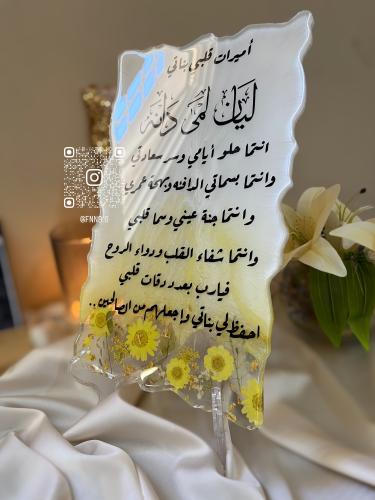 أميرات قلبي بناتي
ليان لمى دانة
انتما حلو أيامي وسر سعادتي
وانتما بسماتي الدافئه وبهجة عمري
وانتما جنة عيني وسما قلبي
وانتما شفاء القلب ودواء الروح
فيارب بعدد دقات قلبي
احفظ لي بناتي واجعلهم من الصالحين ..